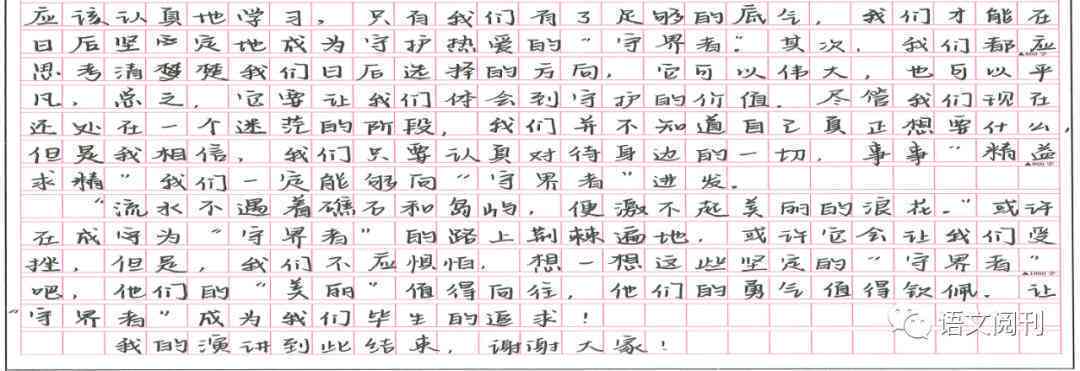 应该认真地学习，只有我们有了足够的底气，我们才能在
日后坚定地成为守护热爱的“守界者”。其次，我们都应
思考清楚我们日后选择的方向，它可以伟大，也可以平
凡，总之，它要让我们体会到守护的价值。尽管我们现在
还处在一个迷茫的阶段，我们并不知道自己真正想要什么，
但是我相信，我们只要认真对待身边的一切，事事“精益
求精”我们一定能够向“守界者”进发。
“流水不遇着礁石和岛屿，便激不起美丽的浪花。”或许
在成守为“守界者”的路上荆棘遍地，或许它会让我们受
挫，但是，我们不应惧怕，想一想这些坚定的“守界者”
▲1000字
吧，他们的“美丽”值得向往，他们的勇气值得钦佩。让
“守界者”成为我们毕生的追求！
我的演讲到此结束，谢谢大家！
语文阅刊